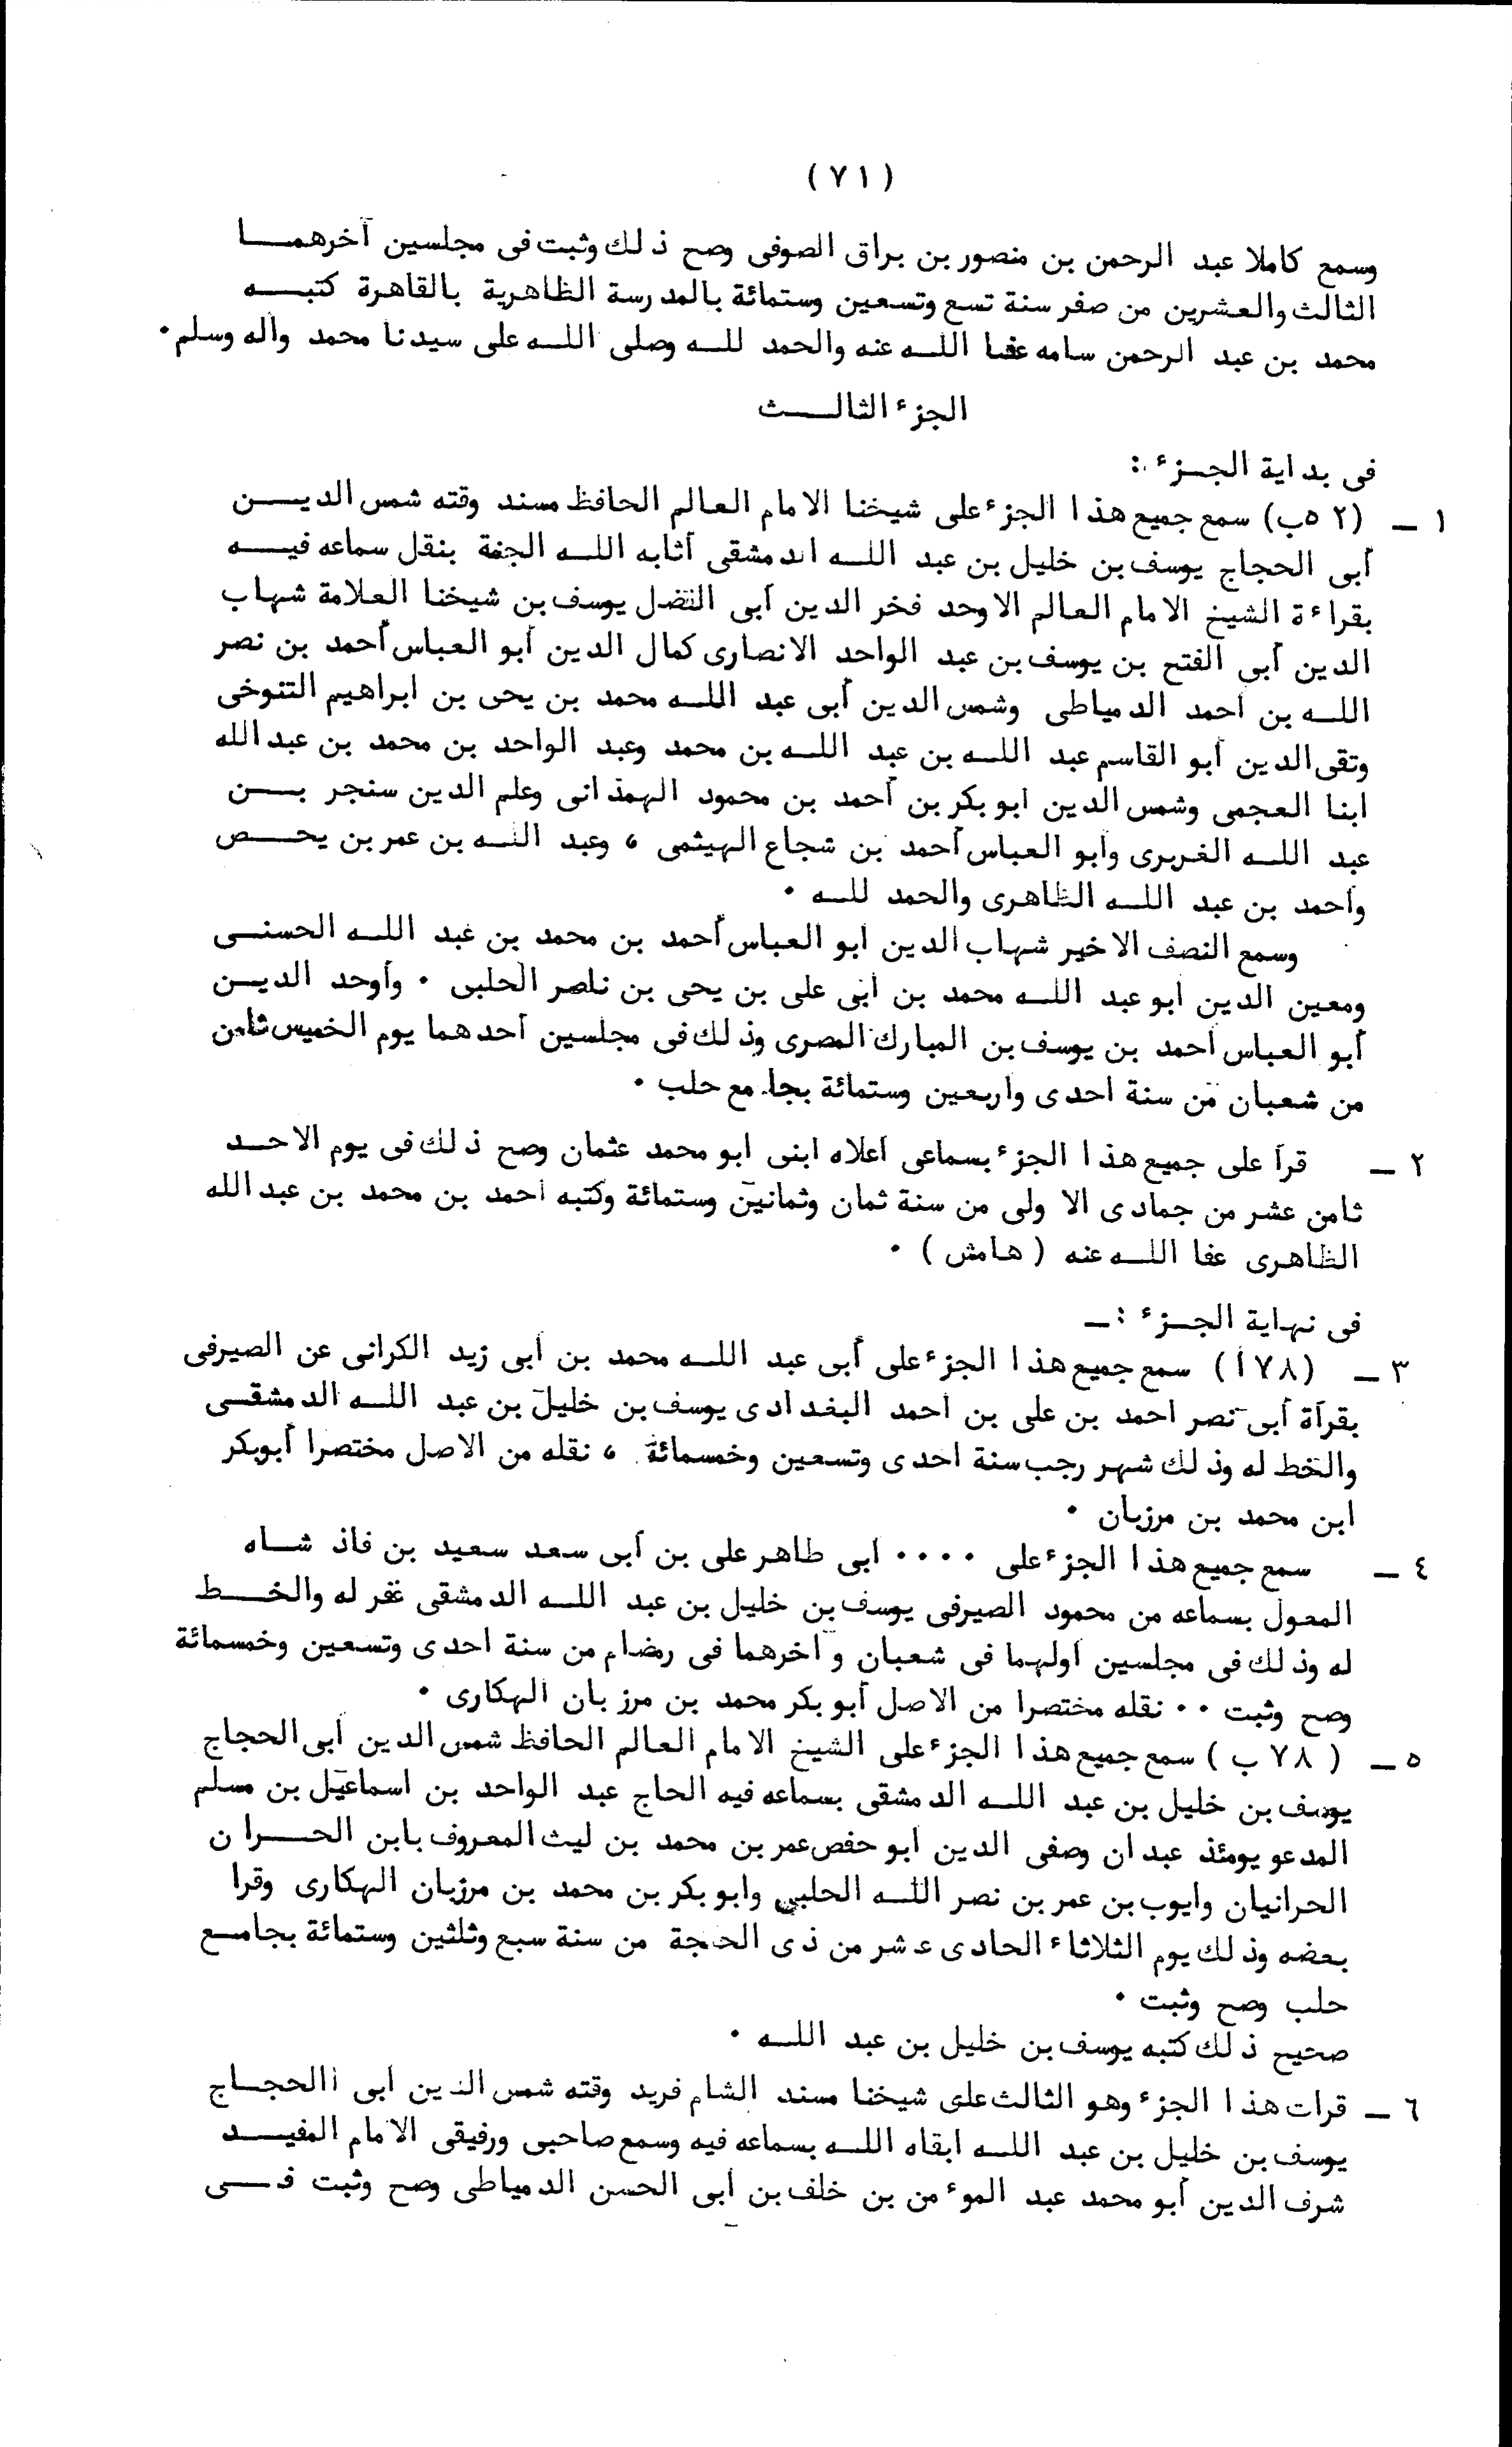 (٧١)
وسمع كاملا عبد الرحمن بن منصور بن براق الصوفى وصح ذلك وثبت فى مجلسين آخرهما
الثالث والعشرين من صفر سنة تسع وتسعين وستمائة بالمدرسة الظاهرية بالقاهرة كتبه
محمد بن عبد الرحمن سامه عفا الله عنه والحمد لله وصلى الله على سيدنا محمد وآله وسلم .
الجزء الثالث
فى بداية الجزء :
١ – (٥٢ب) سمع جميع هذا الجزء على شيخنا الامام العالم الحافظ مسند وقته شمس الدين
أبى الحجاج يوسف بن خليل بن عبد الله الدمشقى أثابه الله الجنة بنقل سماعه فيه
بقراءة الشيخ الامام العالم الاوحد فخر الدين أبى الفضل يوسف بن شيخنا العلامة شهاب
الدين أبى الفتح بن يوسف بن عبد الواحد الانصارى كمال الدين أبو العباس أحمد بن نصر
الله بن أحمد الدمياطى وشمس الدين أبى عبد الله محمد بن يحى بن ابراهيم التنوخى
وتقى الدين أبو القاسم عبد الله بن عبد الله بن محمد وعبد الواحد بن محمد بن عبد الله
ابنا العجمى وشمس الدين ابو بكر بن أحمد بن محمود الهمذانى وعلم الدين سنجر بن
عبد الله الغربرى وأبو العباس أحمد بن شجاع الهيثمى ، وعبد الله بن عمر بن يحص
وأحمد بن عبد الله الظاهرى والحمد لله .
وسمع النصف الاخير شهاب الدين ابو العباس أحمد بن محمد بن عبد الله الحسنى
ومعين الدين ابو عبد الله محمد بن أبى على بن يحى بن ناصر الحلبى . وأوحد الدين
أبو العباس أحمد بن يوسف بن المبارك المصرى وذلك فى مجلسين أحدهما يوم الخميس ثامن
من شعبان من سنة احدى واربعين وستمائة بجامع حلب .
٢ – قرأ على جميع هذا الجزء بسماعى أعلاه ابنى ابو محمد عثمان وصح ذلك فى يوم الاحد
ثامن عشر من جمادى الاولى من سنة ثمان وثمانين وستمائة وكتبه أحمد بن محمد بن عبد الله
الظاهرى عفا الله عنه (هامش) .
فى نهاية الجزء :–
٣ – (٧٨أ) سمع جميع هذا الجزء على أبى عبد الله محمد بن أبى زيد الكرانى عن الصيرفى
بقرآة أبى نصر احمد بن على بن احمد البغدادى يوسف بن خليل بن عبد الله الدمشقى
والخط له وذلك شهر رجب سنة احدى وتسعين وخمسمائة ، نقله من الاصل مختصرا أبوبكر
ابن محمد بن مرزبان .
٤ – سمع جميع هذا الجزء على .... ابى طاهر على بن أبى سعد سعيد بن فاذ شاه
المعول بسماعه من محمود الصيرفى يوسف بن خليل بن عبد الله الدمشقى غفر له والخط
له وذلك فى مجلسين أولهما فى شعبان وآخرهما فى رمضام من سنة احدى وتسعين وخمسمائة
وصح وثبت .. نقله مختصرا من الاصل أبو بكر محمد بن مرزبان الهكارى .
٥ – (٧٨ ب) سمع جميع هذا الجزء على الشيخ الامام العالم الحافظ شمس الدين أبى الحجاج
يوسف بن خليل بن عبد الله الدمشقى بسماعه فيه الحاج عبد الواحد بن اسماعيل بن مسلم
المدعو يومئذ عبدان وصفى الدين أبو حفص عمر بن محمد بن ليث المعروف بابن الحران
الحرانيان وأيوب بن عمر بن نصر الله الحلبى وابو بكر بن محمد بن مرزبان الهكارى وقرا
بعضه وذلك يوم الثلاثاء الحادى عشر من ذى الحجة من سنة سبع وثلثين وستمائة بجامع
حلب وصح وثبت .
صحيح ذلك كتبه يوسف بن خليل بن عبد الله .
٦ – قرات هذا الجزء وهو الثالث على شيخنا مسند الشام فريد وقته شمس الدين أبى االحجاج
يوسف بن خليل بن عبد الله ابقاه الله بسماعه فيه وسمع صاحبى ورفيقى الامام المفيد
شرف الدين أبو محمد عبد الموءمن بن خلف بن أبى الحسن الدمياطى وصح وثبت فى